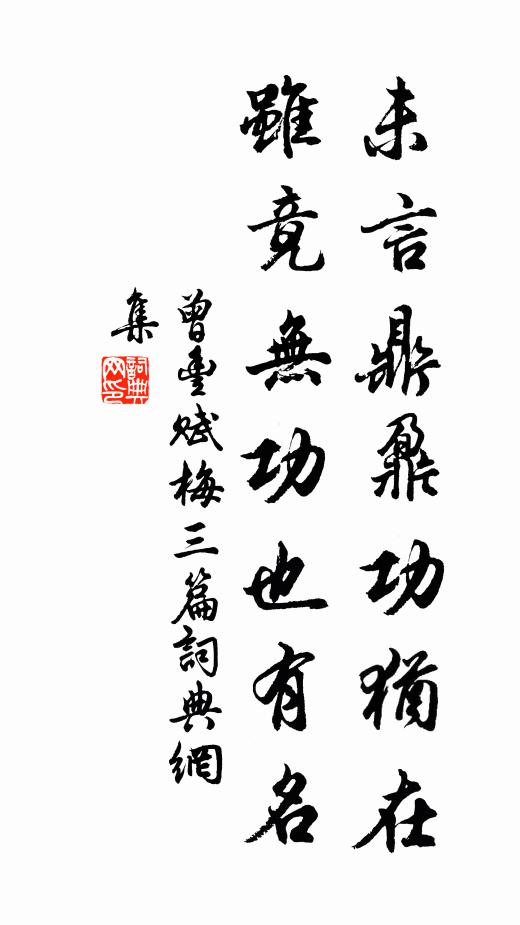 未言鼎鼐功猶在
雖竟無功也有名
曾豐賦梅三篇詞典網
集
詞典网印